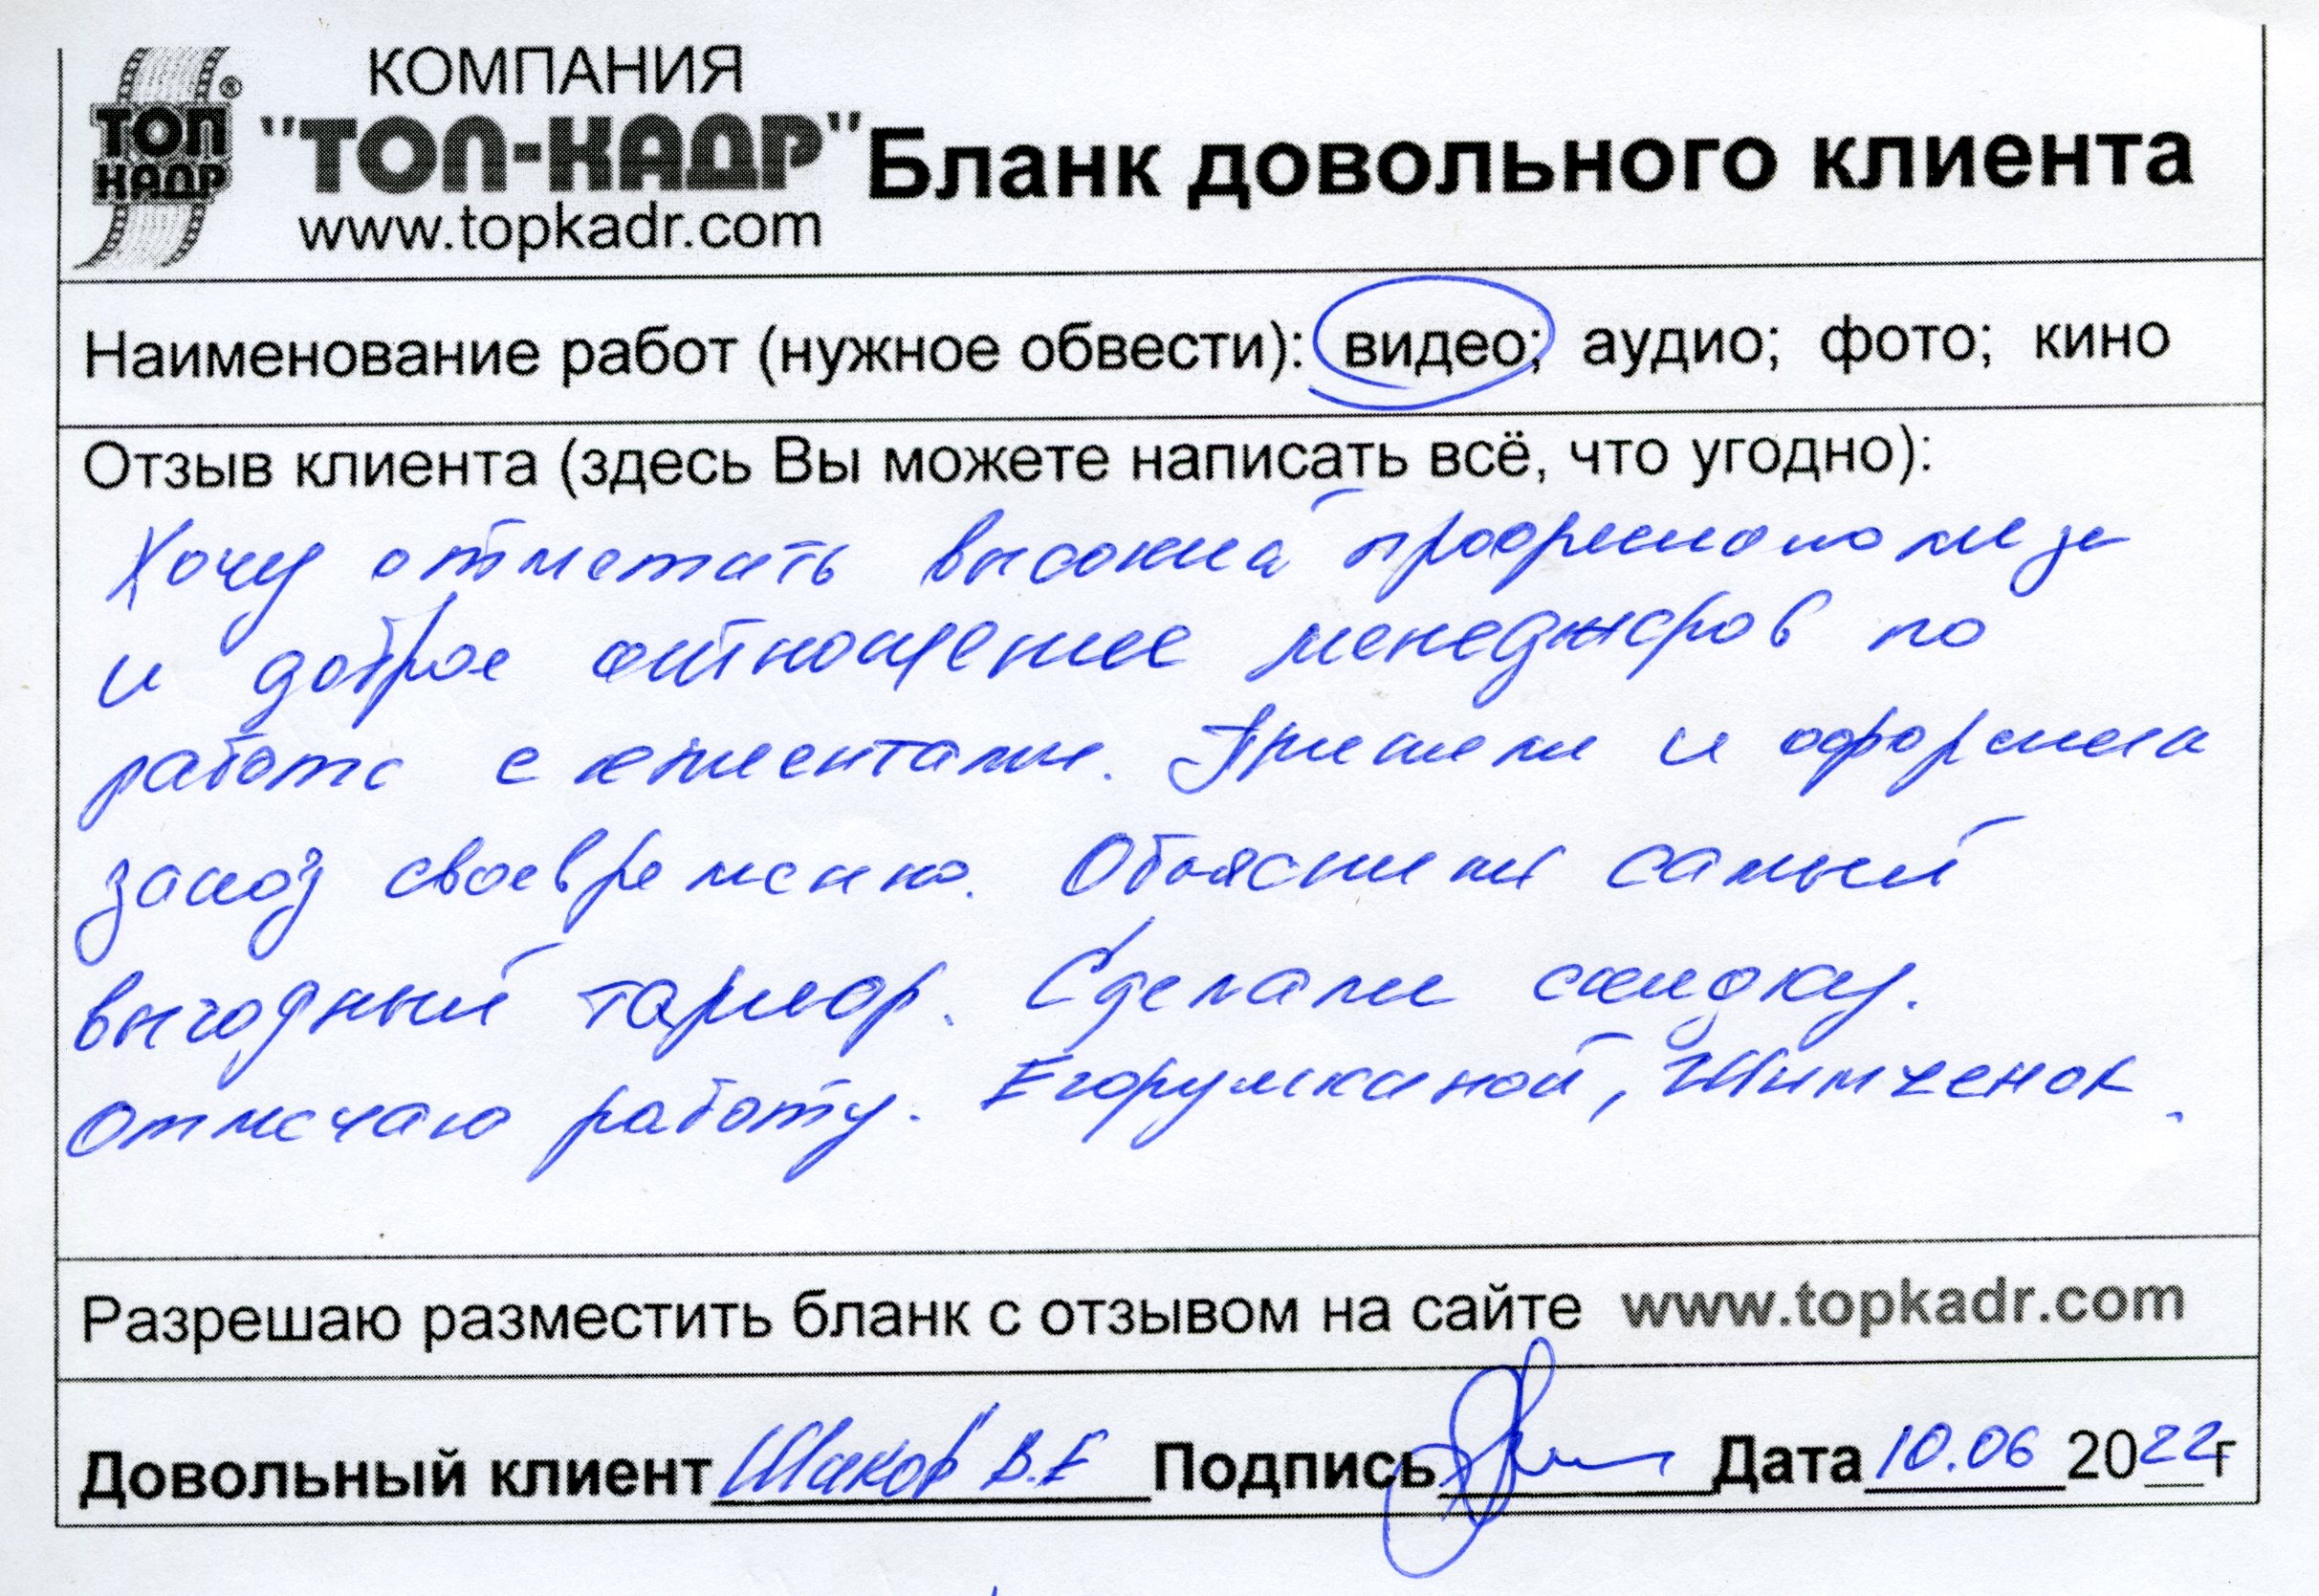 КОМПАНИЯ
ТОП КАДР ®
"ТОП-КАДР"
www.topkadr.com
Бланк довольного клиента
Наименование работ (нужное обвести): видео; аудио; фото; кино
Отзыв клиента (здесь Вы можете написать всё, что угодно):
Хочу отметить высокий профессионализм
и доброе отношение менеджеров по
работе с клиентами. Приняли и оформили
заказ своевременно. Объяснили самый
выгодный тариф. Сделали скидку.
Отмечаю работу. Егорушкиной, Шимченок.
Разрешаю разместить бланк с отзывом на сайте www.topkadr.com
Довольный клиент Шаков В.Е Подпись Дата 10.06 2022г